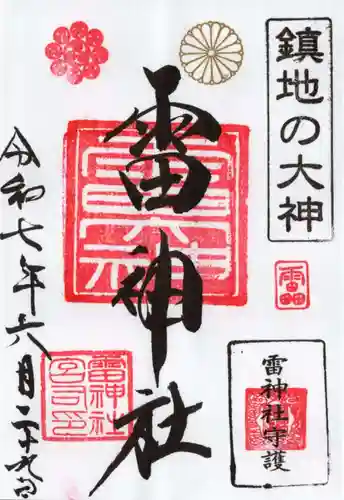 鎮地の大神
雷神社
雷神社守護
令和七年六月二十九日
雷神社
宮司之印